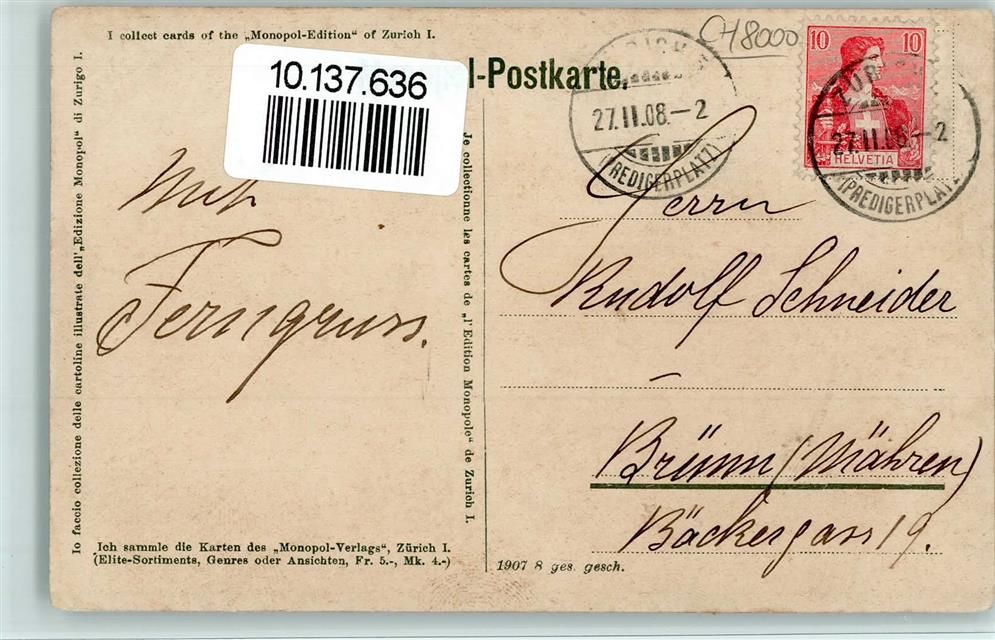 I collect cards of the „Monopol-Edition“ of Zurich I.
CH8000
10.137.636
l-Postkarte.
27.II.08.–2
(PREDIGERPLATZ)
10 10
HELVETIA
ZÜRICH
27.II.08–2
(PREDIGERPLATZ)
Io faccio collezione delle cartoline illustrate dell'„Edizione Monopol“ di Zurigo I.
Mit
Ferngruss.
Je collectionne les cartes de „l'Edition Monopole“ de Zurich I.
Herrn
Rudolf Schneider
–
Brünn (Mähren)
Bäckergass 19.
Ich sammle die Karten des „Monopol-Verlags“, Zürich I.
(Elite-Sortiments, Genres oder Ansichten, Fr. 5.-, Mk. 4.-)
1907 8 ges. gesch.